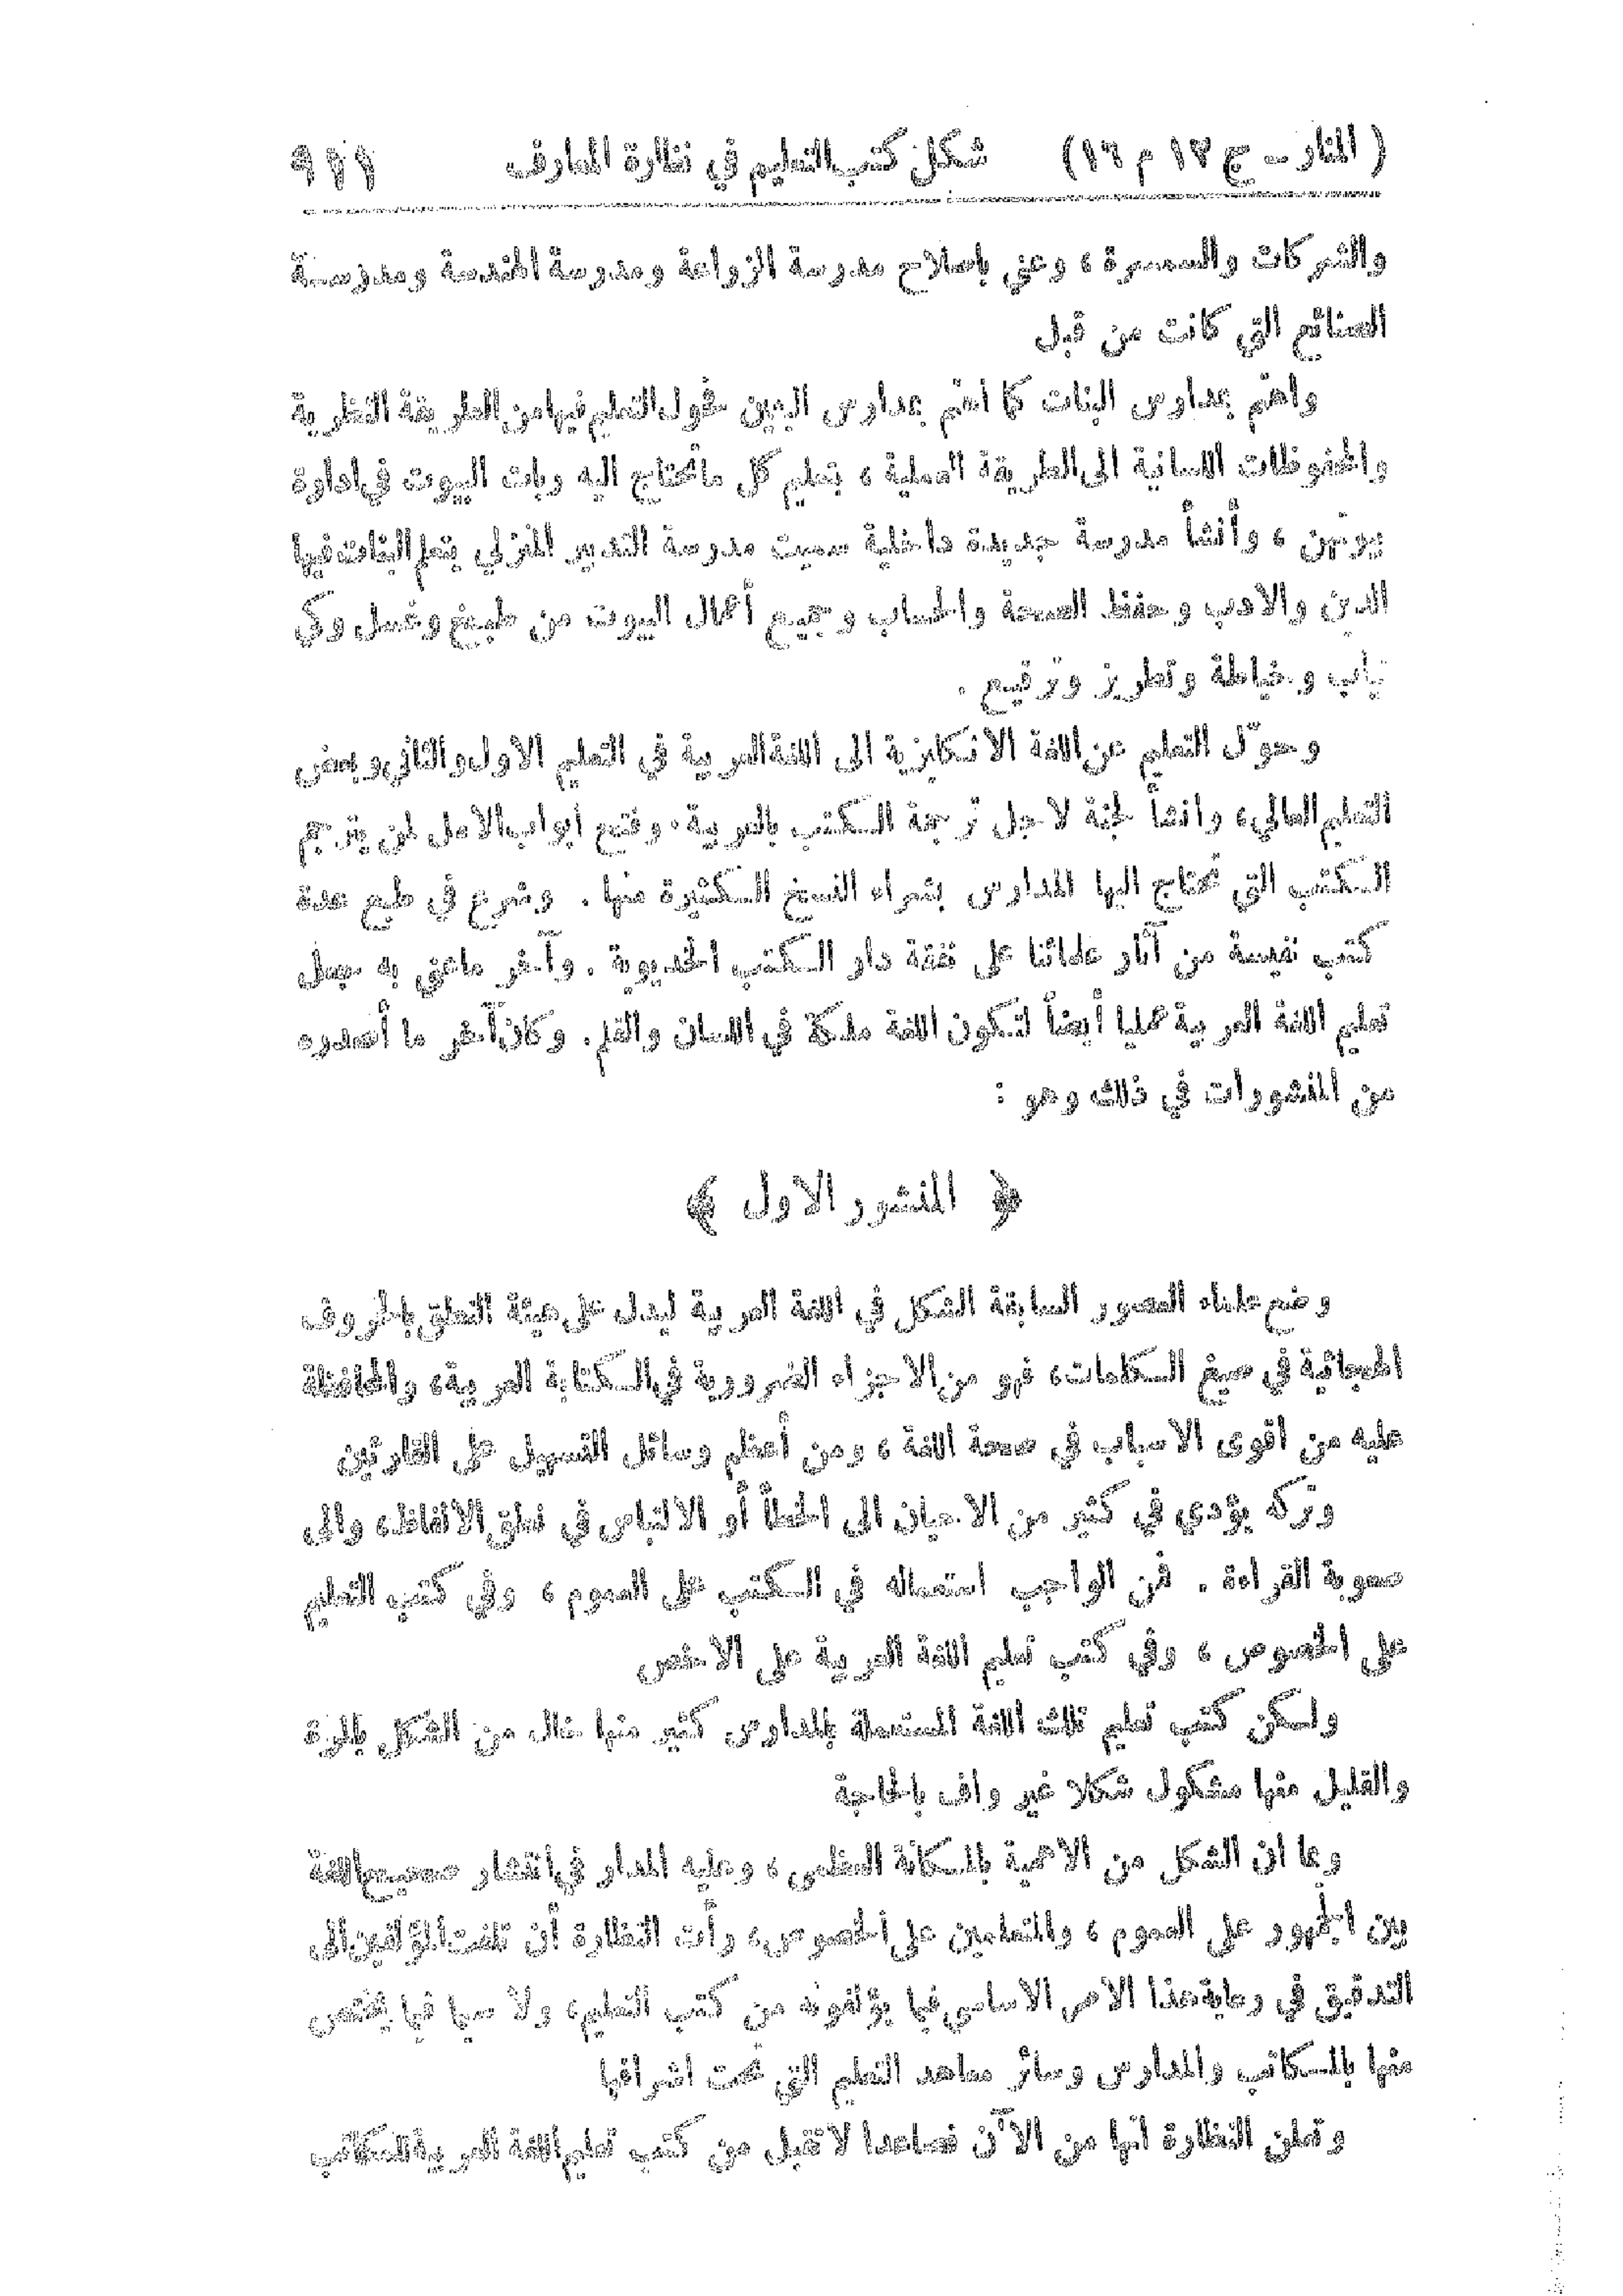 ( المنار – ج ١٢ م ١٦) شكل كتب التعليم في نظارة المعارف ٩١١
والشركات والسمسرة ، وعني باصلاح مدرسة الزراعة ومدرسة الهندسة ومدرسة
الصنائع التي كانت من قبل
واهتم بمدارس البنات كما اهتم بمدارس البنين فحول التعليم فيها من الطريقة النظرية
والمحفوظات اللسانية الى الطريقة العملية ، بتعليم كل ما تحتاج اليه ربات البيوت في ادارة
بيوتهن ، وأنشأ مدرسة جديدة داخلية سميت مدرسة التدبير المنزلي يتعلم البنات فيها
الدين والادب وحفظ الصحة والحساب وجميع أعمال البيوت من طبيخ وغسل وكي
ثياب وخياطة وتطريز وترقيع .
وحوّل التعليم عن اللغة الانكليزية الى اللغة العربية في التعليم الاول والثاني وبعض
التعليم العالي ، وانشأ لجنة لاجل ترجمة الكتب بالعربية ، وفتح أبواب الامل لمن يترجم
الكتب التي تحتاج اليها المدارس بشراء النسخ الكثيرة منها . وشرع في طبع عدة
كتب نفيسة من آثار علمائنا على نفقة دار الكتب الخديوية . وآخر ما عني به جعل
تعليم اللغة العربية عمليا أيضاً لتكون اللغة ملكة في اللسان والقلم . وكان آخر ما أصدره
من المنشورات في ذلك وهو :
﴿ المنشور الاول ﴾
وضع علماء العصور السابقة الشكل في اللغة العربية ليدل على هيئة النطق بالحروف
الهجائية في صيغ الكلمات ، فهو من الاجزاء الضرورية في الكتابة العربية ، والمحافظة
عليه من اقوى الاسباب في صحة اللغة ، ومن أعظم وسائل التسهيل على القارئين
وتركه يؤدي في كثير من الاحيان الى الخطأ أو الالتباس في نطق الالفاظ ، والى
صعوبة القراءة . فمن الواجب استعماله في الكتب على العموم ، وفي كتب التعليم
على الخصوص ، وفي كتب تعليم اللغة العربية على الاخص
ولكن كتب تعليم تلك اللغة المستعملة بالمدارس كثير منها خال من الشكل بالمرة
والقليل منها مشكول شكلا غير واف بالحاجة
وبما ان الشكل من الاهمية بالمكانة العظمى ، وعليه المدار في انتشار صحيح اللغة
بين الجمهور على العموم ، والمتعلمين على الخصوص ، رأت النظارة أن تلفت المؤلفين الى
التدقيق في رعاية هذا الامر الاساسي فيما يؤلفونه من كتب التعليم ، ولا سيما فيما يختص
منها بالمكاتب والمدارس وسائر معاهد التعليم التي تحت اشرافها
وتعلن النظارة أنها من الآن فصاعدا لا تقبل من كتب تعليم اللغة العربية للمكاتب